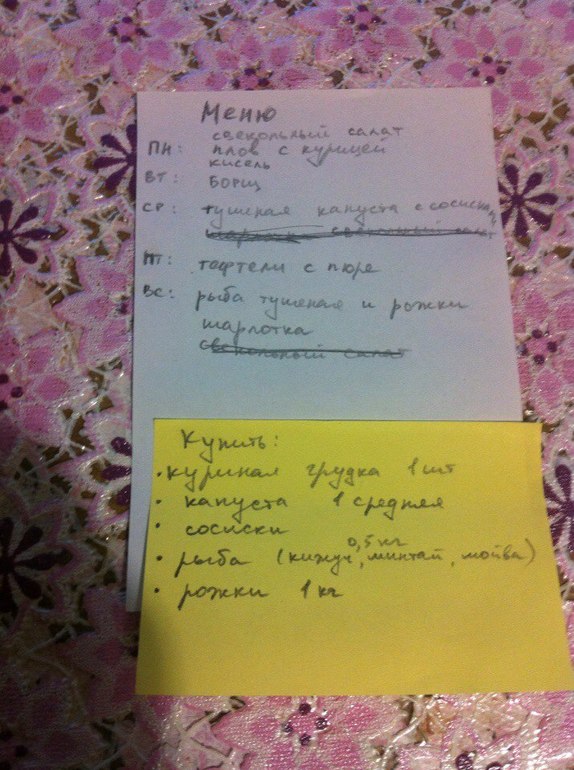 Меню
свекольный салат
ПН: плов с курицей
кисель
ВТ: БОРЩ
СР: тушеная капуста с сосисками
шарлотка свекольный салат
ПТ: тефтели с пюре
ВС: рыба тушеная и рожки
шарлотка
свекольный салат
Купить:
• куриная грудка 1 шт
• капуста 1 средняя
• сосиски
0,5 кг
• рыба (кижуч, минтай, мойва)
• рожки 1 кг